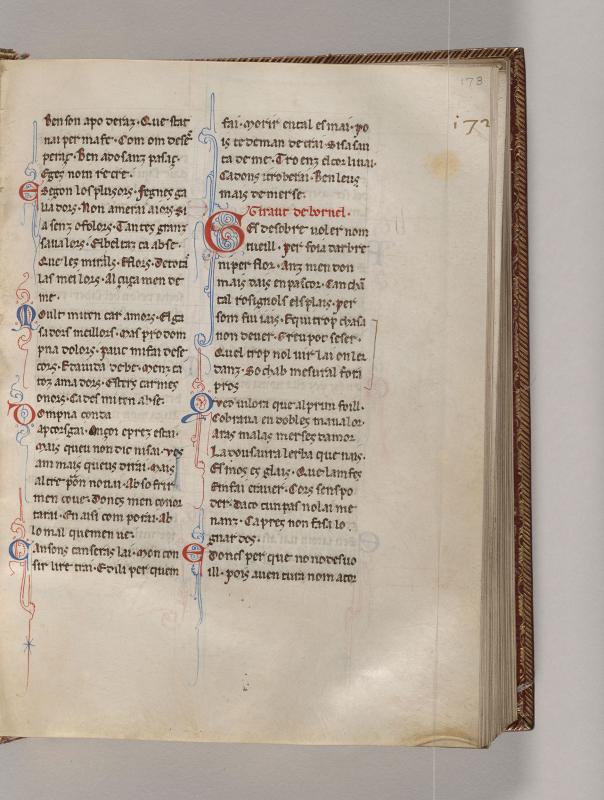 173
172
Ben son apoderaz · Que star
nai per ma fe · Com om dese
peraç · Ben ado sanz pasaç ·
E gez nom recre ·
Segon los plusors · Fegnez ga
liadors · Non amerai aiors Si
a senz o folors · Tan tes granz
sa ualors · E ibeltaz ca abse ·
Que lez miralz · E flors · De tota
las meilors · Al çuça men de
me ·
Molt miten car amors · El ga
sadors meillors · Mas pro dom
pna dolors · pauc mi fai dese
cors · E tauida de be · Menz ca
toz amadors · Esters carmes
onors · Ca des mi ten abse ·
Dompna conda
mais queu non dic ni sai · ves
am mais queus dirai · Mais
altre pon no uai · Ab sofrir
men coue · Doncs men conor
tarai · En aisi com porai · Ab
lo mal que men ue ·
Cansons can seras lai · Mon con
sir li retrai · E dili per quem
fai · Morir cu tal esmai · yo
is te deman de trai · Si sa sau
ca de me · Tro enz el cor li uai ·
Ca dons i trobera · Ben leus
mais de merse ·
Giraut de bornel ·
Ges de sobre uoler nom
tueill · per foia darbre
ni per flor · Anz men don
mais dais en pascor · Can chan
tal rosignols els plais · per
som fui iais · E qui trop chasa
non deuer · Greu pot seser ·
Quel trop nol uir lai on ler
danz · So chab mesural foti
pros
que al prim foill ·
Cobraua en dobles ma ualor ·
Aras malaz mersez damor
La dousaura lerba que nais ·
El mos ez glais · Que lam fez
Em fai craver · Cors sens po
der · Daco cun pas nol ai me
nanz · Ca prez non fasa lo
gnar dos ·
E doncs per que no no desuo
ill · pois auen tura nom acor